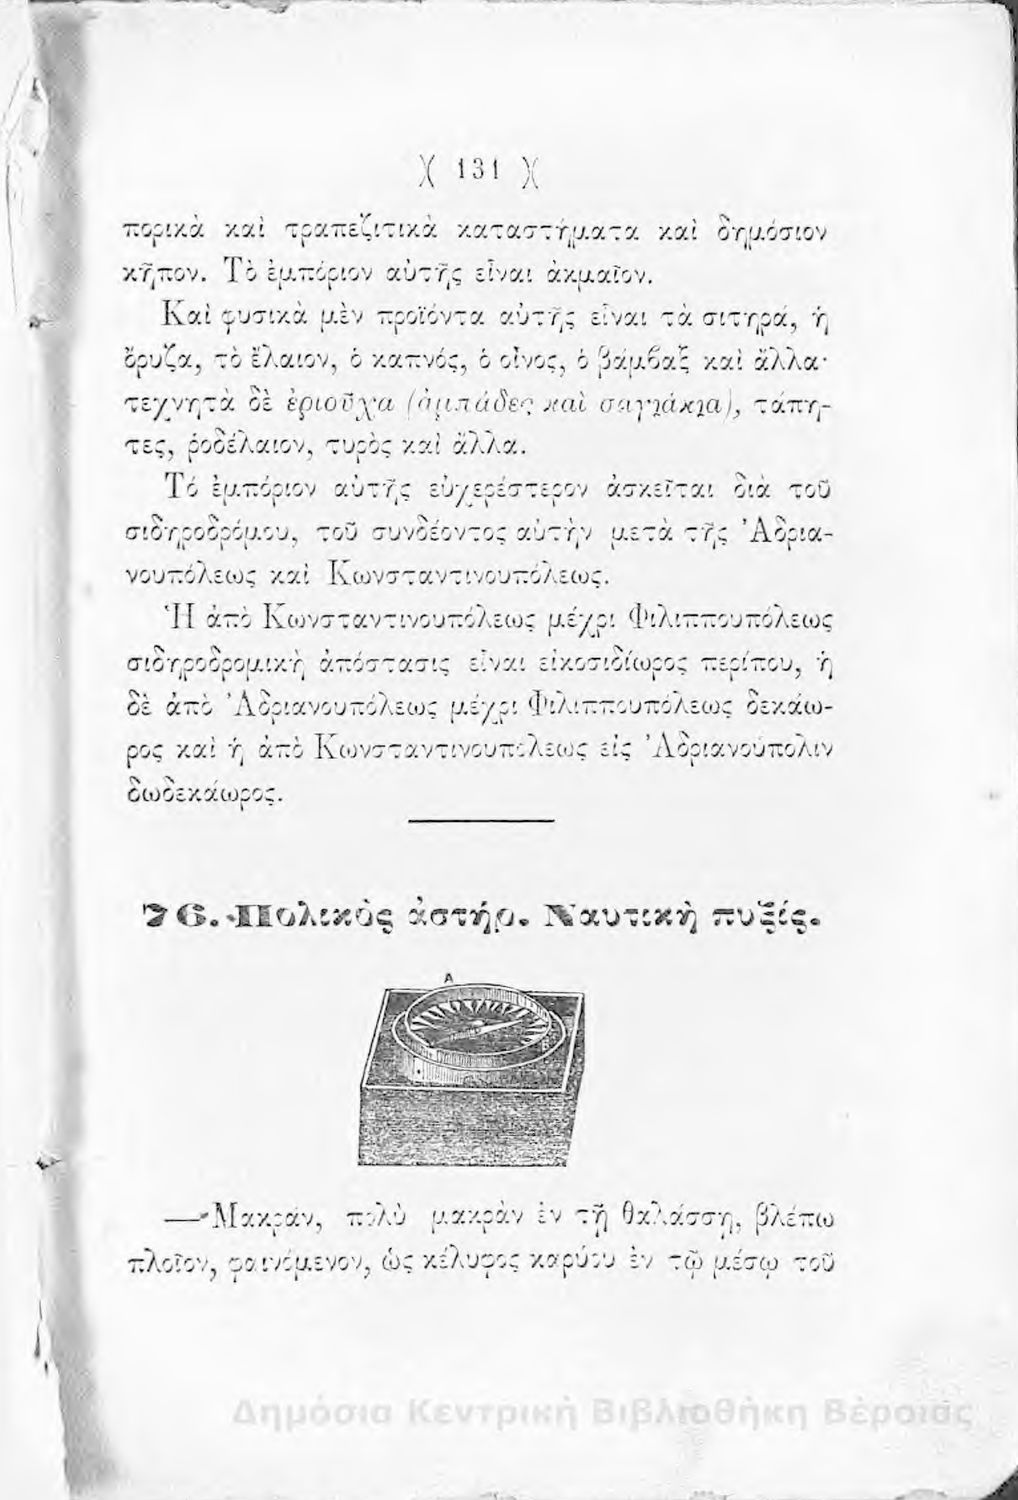 )( 131 )(
πορικὰ καὶ τραπεζιτικὰ καταστήματα καὶ δημόσιον
κῆπον. Τὸ ἐμπόριον αὐτῆς εἶναι ἀκμαῖον.
Καὶ φυσικὰ μὲν προϊόντα αὐτῆς εἶναι τὰ σιτηρά, ἡ
ὄρυζα, τὸ ἔλαιον, ὁ καπνός, ὁ οἶνος, ὁ βάμβαξ καὶ ἄλλα·
τεχνητὰ δὲ ἐριοῦχα (ἀμπάδες καὶ σαγιάκια), τάπη-
τες, ῥοδέλαιον, τυρὸς καὶ ἄλλα.
Τό ἐμπόριον αὐτῆς εὐχερέστερον ἀσκεῖται διὰ τοῦ
σιδηροδρόμου, τοῦ συνδέοντος αὐτὴν μετὰ τῆς Ἀδρια-
νουπόλεως καὶ Κωνσταντινουπόλεως.
Ἡ ἀπὸ Κωνσταντινουπόλεως μέχρι Φιλιππουπόλεως
σιδηροδρομικὴ ἀπόστασις εἶναι εἰκοσιδίωρος περίπου, ἡ
δὲ ἀπὸ Ἀδριανουπόλεως μέχρι Φιλιππουπόλεως δεκάω-
ρος καὶ ἡ ἀπὸ Κωνσταντινουπόλεως εἰς Ἀδριανούπολιν
δωδεκάωρος.
76. Πολικὸς ἀστήρ. Ναυτικὴ πυξίς.
A
B
—Μακράν, πολὺ μακρὰν ἐν τῇ θαλάσσῃ, βλέπω
πλοῖον, φαινόμενον, ὡς κέλυφος καρύου ἐν τῷ μέσῳ τοῦ
Δημόσια Κεντρική Βιβλιοθήκη Βέροιας